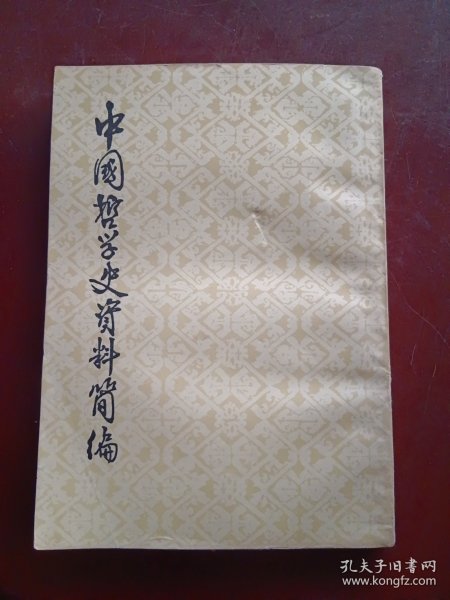 中國哲学史资料简编
孔夫子旧书网
www.kongfz.com